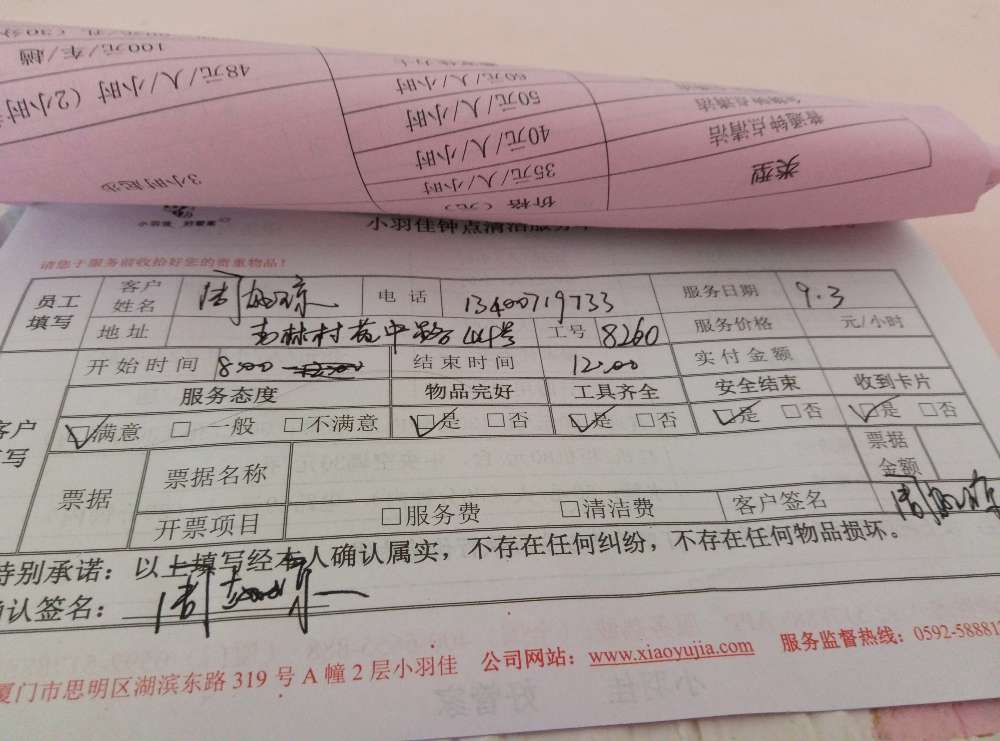 100元/车/趟
48元/人/小时（2小时
60元/人/小时
50元/人/小时
40元/人/小时
35元/人/小时
3小时起步
价格（元）
普通钟点清洁
类型
小羽佳 好管家
小羽佳钟点清洁服务
请您于服务前收拾好您的贵重物品！
员工填写 客户姓名 电话 13400719733 服务日期 9.3
地址 村 中路44号 工号 8260 服务价格 元/小时
开始时间 8:00 结束时间 12:00 实付金额
服务态度 物品完好 工具齐全 安全结束 收到卡片
☑满意 □一般 □不满意 ☑是 □否 ☑是 □否 ☑是 □否 ☑是 □否
票据 票据名称 票据金额
开票项目 □服务费 □清洁费 客户签名
特别承诺：以上填写经本人确认属实，不存在任何纠纷，不存在任何物品损坏。
确认签名：
厦门市思明区湖滨东路 319 号 A 幢 2 层小羽佳 公司网站：www.xiaoyujia.com 服务监督热线：0592-58881